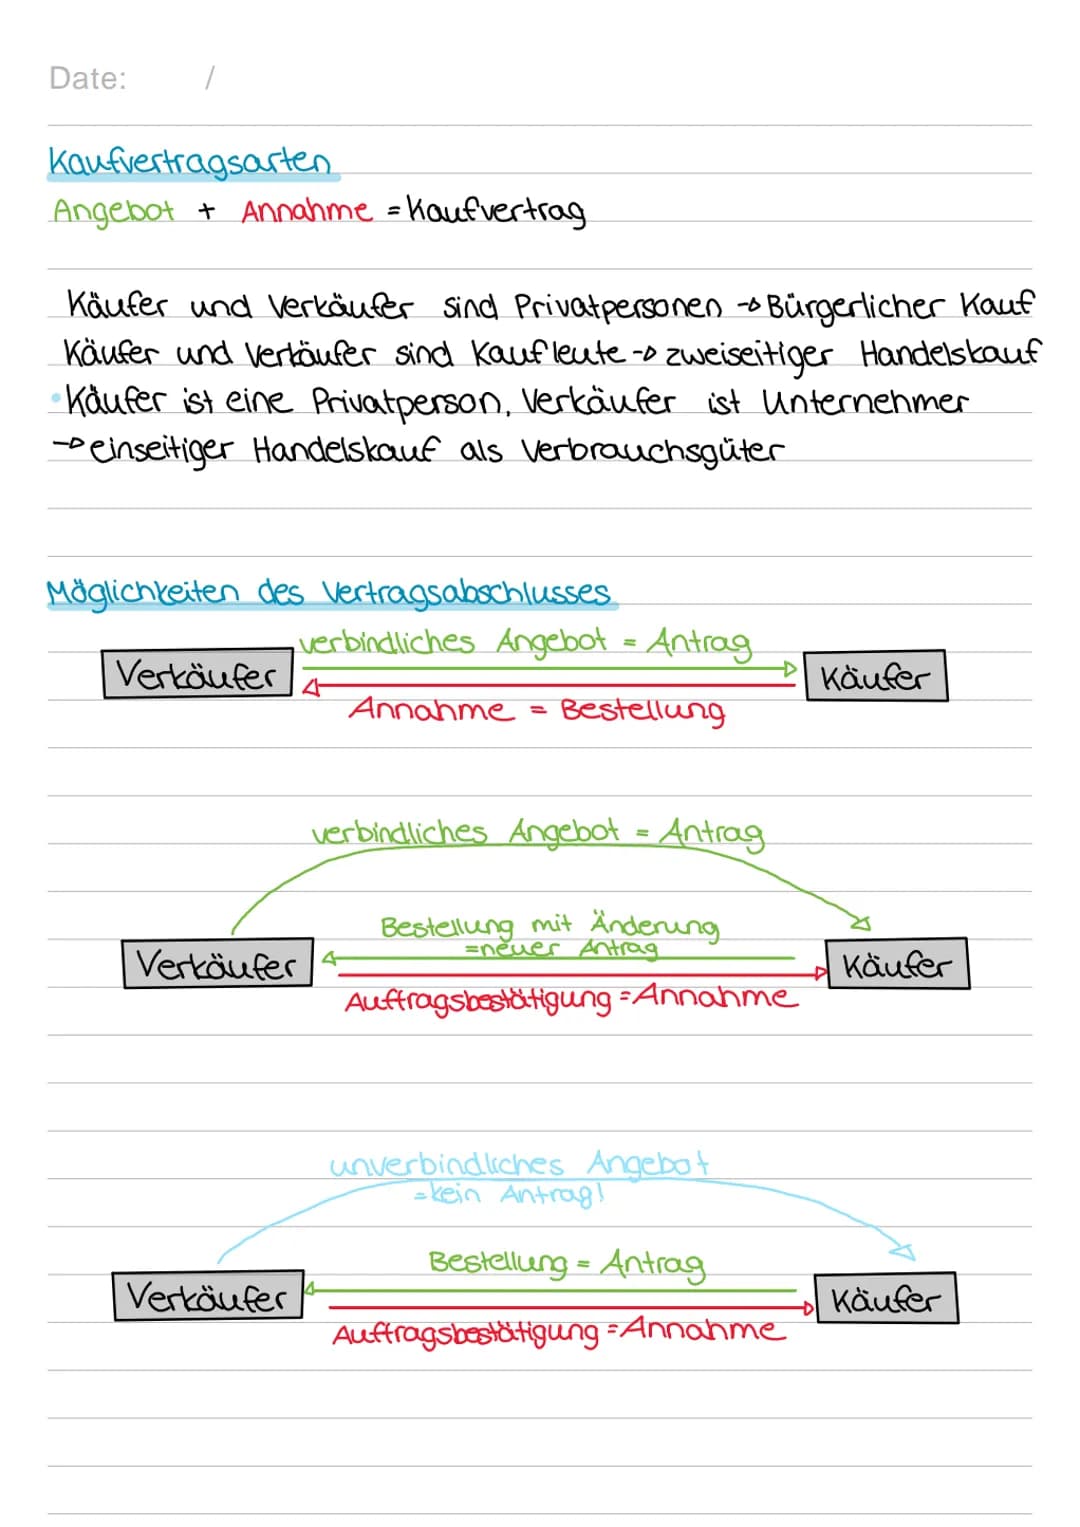 Date: /
Kaufvertragsarten
Angebot + Annahme = Kaufvertrag
Käufer und Verkäufer sind Privatpersonen → Bürgerlicher Kauf
Käufer und Verkäufer sind Kaufleute → zweiseitiger Handelskauf
• Käufer ist eine Privatperson, Verkäufer ist Unternehmer
→ einseitiger Handelskauf als Verbrauchsgüter
Möglichkeiten des Vertragsabschlusses
verbindliches Angebot = Antrag
Verkäufer Käufer
Annahme = Bestellung
verbindliches Angebot = Antrag
Bestellung mit Änderung
=neuer Antrag
Verkäufer Käufer
Auftragsbestätigung = Annahme
unverbindliches Angebot
=kein Antrag!
Bestellung = Antrag
Verkäufer Käufer
Auftragsbestätigung = Annahme